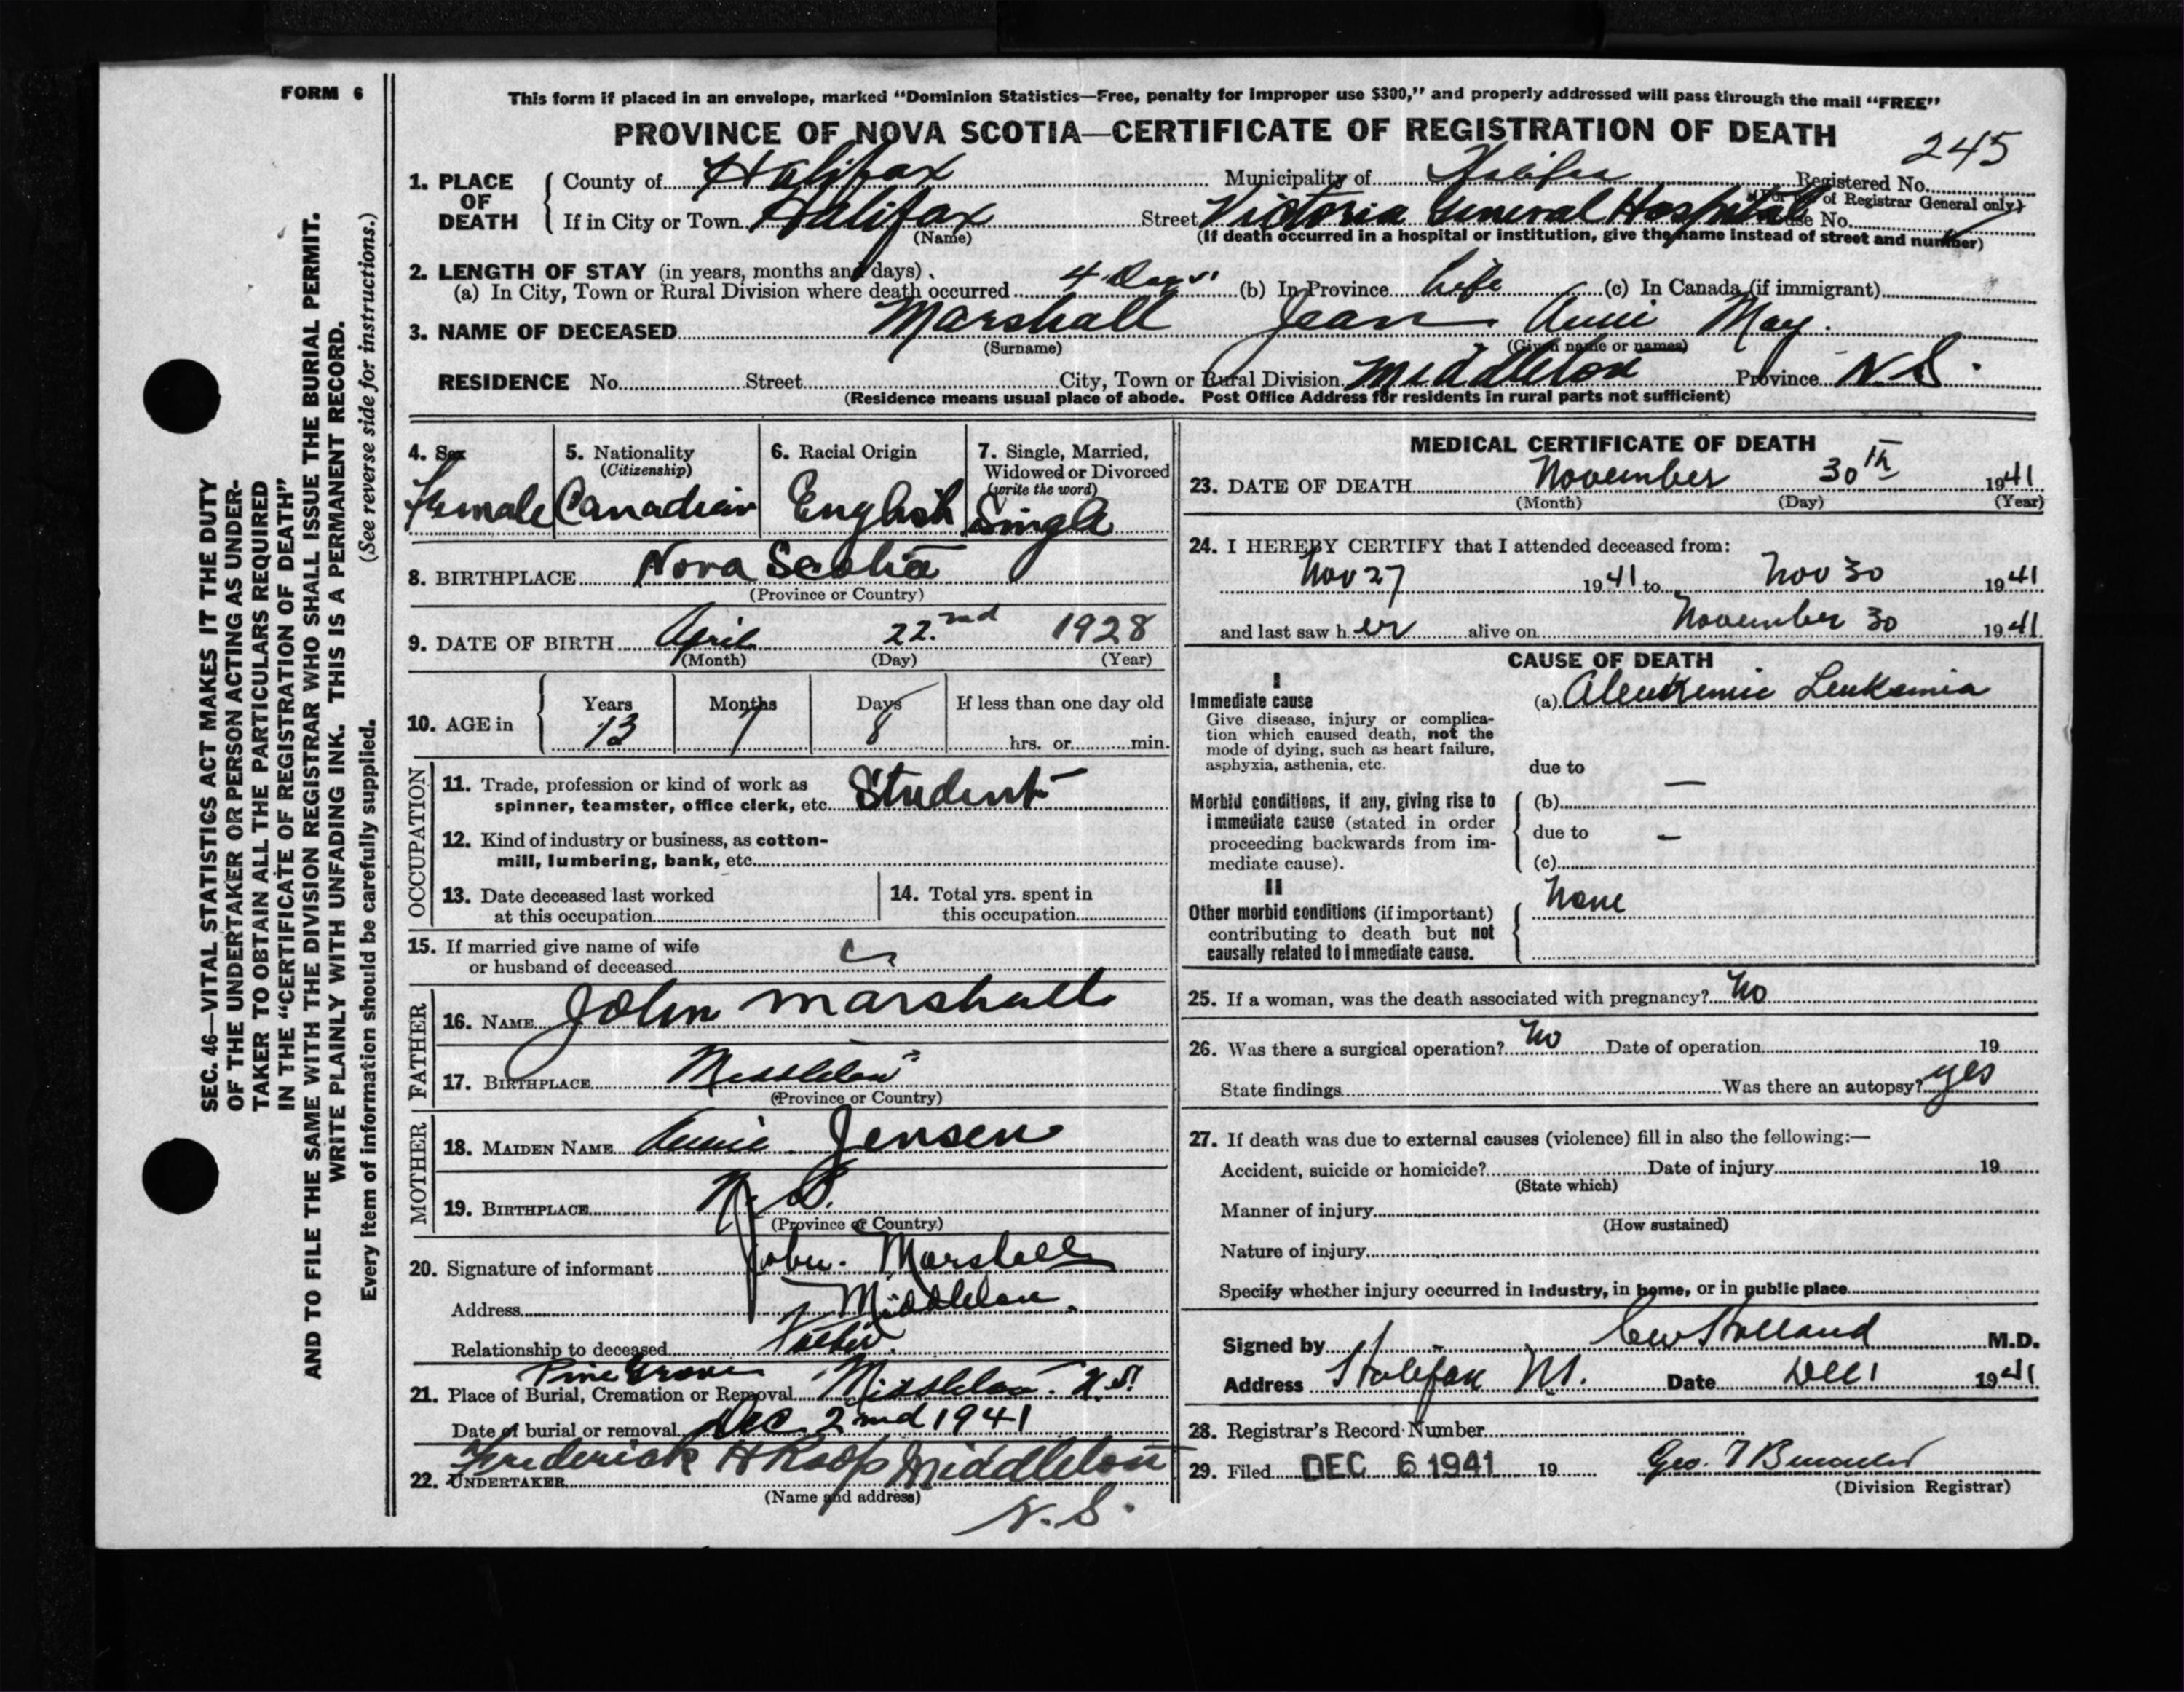 FORM 6
This form if placed in an envelope, marked "Dominion Statistics—Free, penalty for improper use $300," and properly addressed will pass through the mail "FREE"
PROVINCE OF NOVA SCOTIA—CERTIFICATE OF REGISTRATION OF DEATH
245
1. PLACE OF DEATH
County of Halifax Municipality of Halifax Registered No.
(For use of Registrar General only)
If in City or Town Halifax Street Victoria General Hospital House No.
(Name) (If death occurred in a hospital or institution, give the name instead of street and number)
2. LENGTH OF STAY (in years, months and days)
(a) In City, Town or Rural Division where death occurred 4 Days (b) In Province Life (c) In Canada (if immigrant)
3. NAME OF DECEASED Marshall Jean Annie May.
(Surname) (Given name or names)
RESIDENCE No. Street City, Town or Rural Division Middleton Province N.S.
(Residence means usual place of abode. Post Office Address for residents in rural parts not sufficient)
4. Sex Female
5. Nationality (Citizenship) Canadian
6. Racial Origin English
7. Single, Married, Widowed or Divorced (write the word) Single
8. BIRTHPLACE Nova Scotia
(Province or Country)
9. DATE OF BIRTH April 22nd 1928
(Month) (Day) (Year)
10. AGE in Years 13 Months 7 Days 8 If less than one day old hrs. or min.
OCCUPATION
11. Trade, profession or kind of work as
spinner, teamster, office clerk, etc. Student
12. Kind of industry or business, as cotton-
mill, lumbering, bank, etc.
13. Date deceased last worked
at this occupation
14. Total yrs. spent in
this occupation
15. If married give name of wife
or husband of deceased
FATHER
16. NAME John Marshall
17. BIRTHPLACE Middleton
(Province or Country)
MOTHER
18. MAIDEN NAME Annie Jensen
19. BIRTHPLACE N.S.
(Province or Country)
20. Signature of informant John Marshall
Address Middleton.
Relationship to deceased Father.
21. Place of Burial, Cremation or Removal Pine Grove Middleton. N.S.
Date of burial or removal Dec. 2nd 1941
22. UNDERTAKER Frederick H Roop Middleton
(Name and address)
N.S.
MEDICAL CERTIFICATE OF DEATH
23. DATE OF DEATH November 30th 1941
(Month) (Day) (Year)
24. I HEREBY CERTIFY that I attended deceased from:
Nov 27 1941 to Nov 30 1941
and last saw her alive on November 30 1941
CAUSE OF DEATH
I
Immediate cause
Give disease, injury or complica-
tion which caused death, not the
mode of dying, such as heart failure,
asphyxia, asthenia, etc.
(a) Aleukemic Leukemia
due to —
Morbid conditions, if any, giving rise to
immediate cause (stated in order
proceeding backwards from im-
mediate cause).
(b)
due to —
(c)
II
Other morbid conditions (if important)
contributing to death but not
causally related to immediate cause.
None
25. If a woman, was the death associated with pregnancy? No
26. Was there a surgical operation? No Date of operation 19
State findings Was there an autopsy? yes
27. If death was due to external causes (violence) fill in also the following:—
Accident, suicide or homicide? Date of injury 19
(State which)
Manner of injury
(How sustained)
Nature of injury
Specify whether injury occurred in industry, in home, or in public place
Signed by Holland M.D.
Address Halifax N.S. Date Dec 1 1941
28. Registrar's Record Number
29. Filed DEC 6 1941 19 Geo.
(Division Registrar)
SEC. 46—VITAL STATISTICS ACT MAKES IT THE DUTY
OF THE UNDERTAKER OR PERSON ACTING AS UNDER-
TAKER TO OBTAIN ALL THE PARTICULARS REQUIRED
IN THE "CERTIFICATE OF REGISTRATION OF DEATH"
AND TO FILE THE SAME WITH THE DIVISION REGISTRAR WHO SHALL ISSUE THE BURIAL PERMIT.
WRITE PLAINLY WITH UNFADING INK. THIS IS A PERMANENT RECORD.
Every item of information should be carefully supplied. (See reverse side for instructions.)